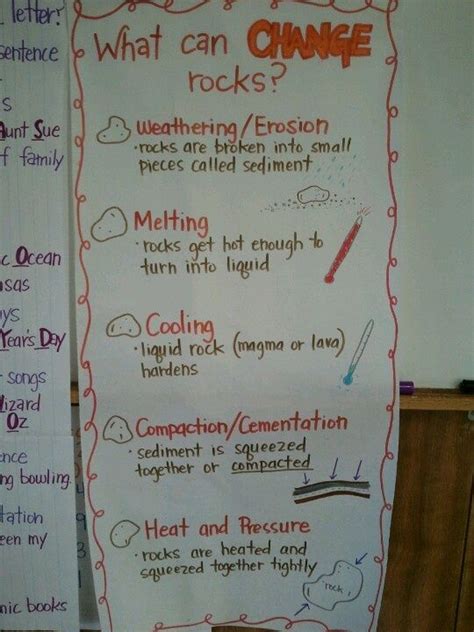 letter?
sentence
s
Aunt Sue
f family
c Ocean
sas
ys
Year's Day
songs
Wizard
Oz
nce
ng bowling.
tation
een my
nic books
What can CHANGE
rocks?
Weathering/Erosion
• rocks are broken into small
pieces called sediment
Melting
• rocks get hot enough to
turn into liquid
Cooling
• liquid rock (magma or lava)
hardens
Compaction/Cementation
• sediment is squeezed
together or compacted
Heat and Pressure
• rocks are heated and
squeezed together tightly
rock